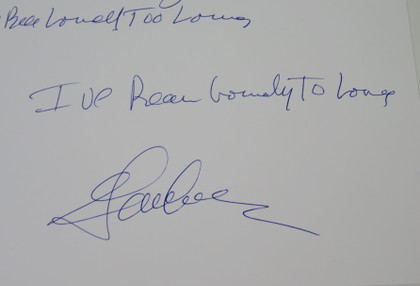 Been Lonely Too Long
I've Been Lonely To Long